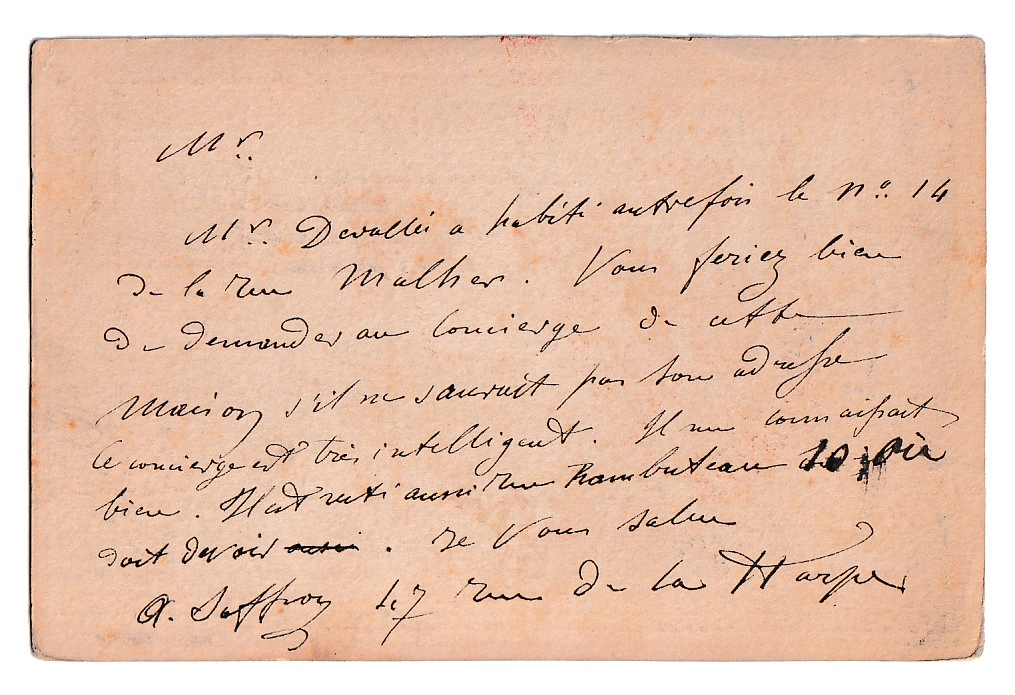 Mr.
Mr. Devallée a habité autrefois le no. 14
de la rue Malher. Vous feriez bien
de demander au Concierge de cette
Maison s'il ne saurait pas son adresse
Ce concierge est très intelligent. Il me connaissait
bien. Il est resté aussi rue Rambuteau 10, où il
doit devoir aussi. Je Vous salue
A. Saffroy 47 rue de la Harpe